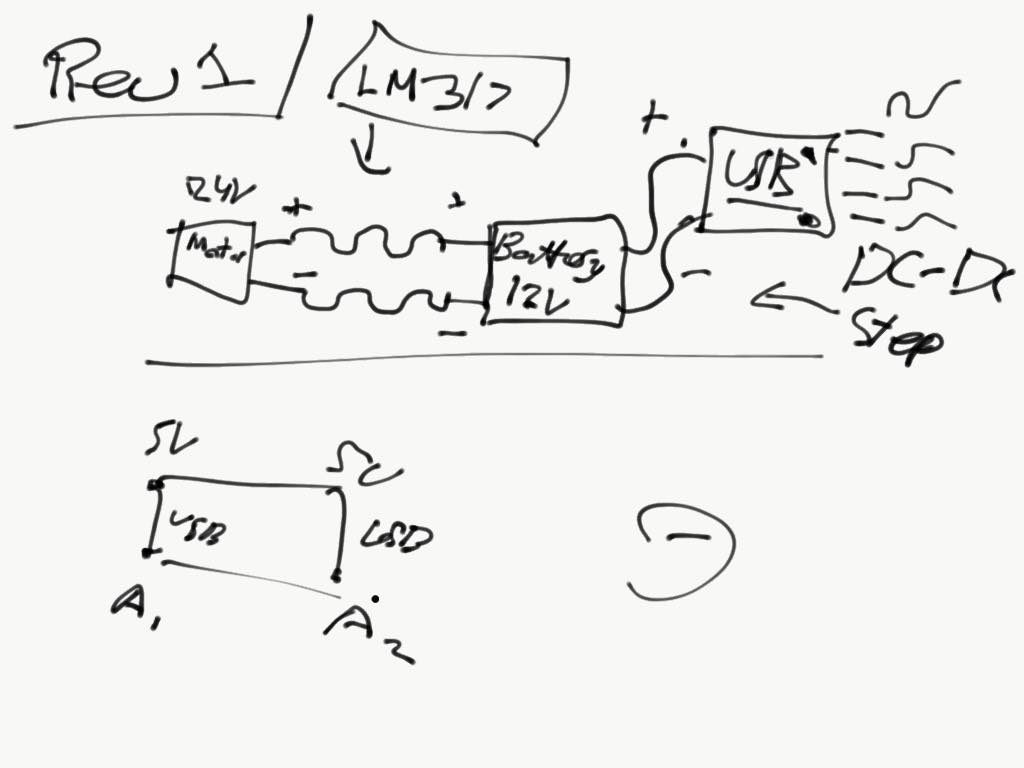 Rev 1
LM317
24V
+ +
Motor
- -
Battery
12V
+
USB
-
DC-DC
Step
5V 5V
USB USB
A1 A2
-